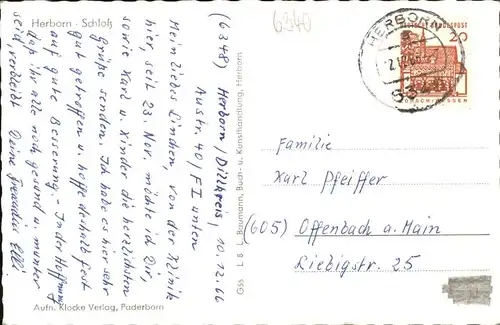 Herborn - Schloß
6340
(6348) Herborn/Dillkreis, 10.12.66
Austr. 40/F I unten
Mein liebes Linchen, von der Klinik
hier, seit 23. Nov. möchte ich Dir,
sowie Karl u. Kinder die herzlichsten
Grüße senden. Ich habe es hier sehr
gut getroffen u. hoffe deshalb fest
auf gute Besserung. - In der Hoffnung
daß ihr alle noch gesund u. munter
seid, verbleibt Deine Elli.
Aufn. Klocke Verlag, Paderborn
Gss L.B. L. Baumann, Buch- u. Kunsthandlung, Herborn
HERBORN
DEUTSCHE BUNDESPOST
Familie
Karl Pfeiffer
(605) Offenbach a. Main
Liebigstr. 25